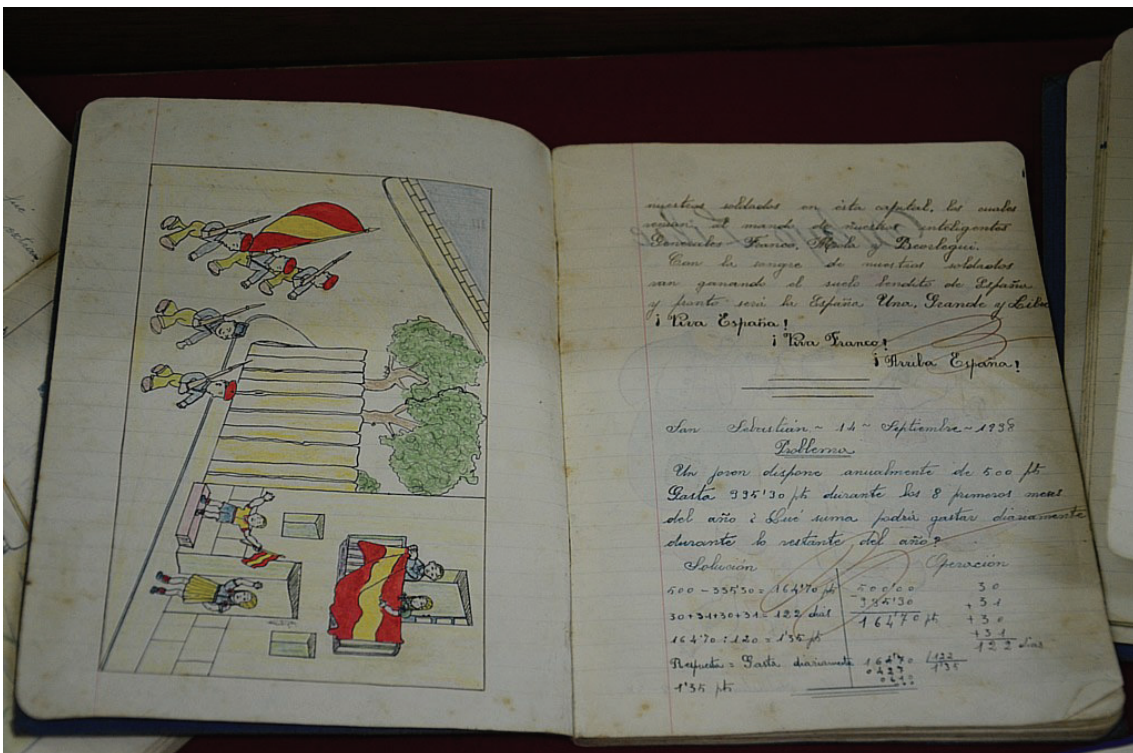 nuestros soldados en ésta capital, los cuales
venian al mando de nuestros inteligentes
Generales Franco, Mola Beorlegui.
Con la sangre de nuestros soldados
van ganando el suelo bendito de España
y pronto será la España Una, Grande y Libre
¡Viva España!
¡Viva Franco!
¡Arriba España!
San Sebastián ~ 14 ~ Septiembre ~ 1938
Problema
Un joven dispone anualmente de 500 pts
Gasta 335'30 pts durante los 8 primeros meses
del año ¿Qué suma podrá gastar diariamente
durante lo restante del año?
Solución
500 - 335'30 = 164'70 pts
30+31+30+31 = 122 dias
164'70 : 120 = 1'35 pts
Respuesta = Gasta diariamente
1'35 pts
Operación
500'00
- 335'30
164'70 pts
16470 122
0427 1'35
0610
30
+ 31
+ 30
+ 31
122 dias